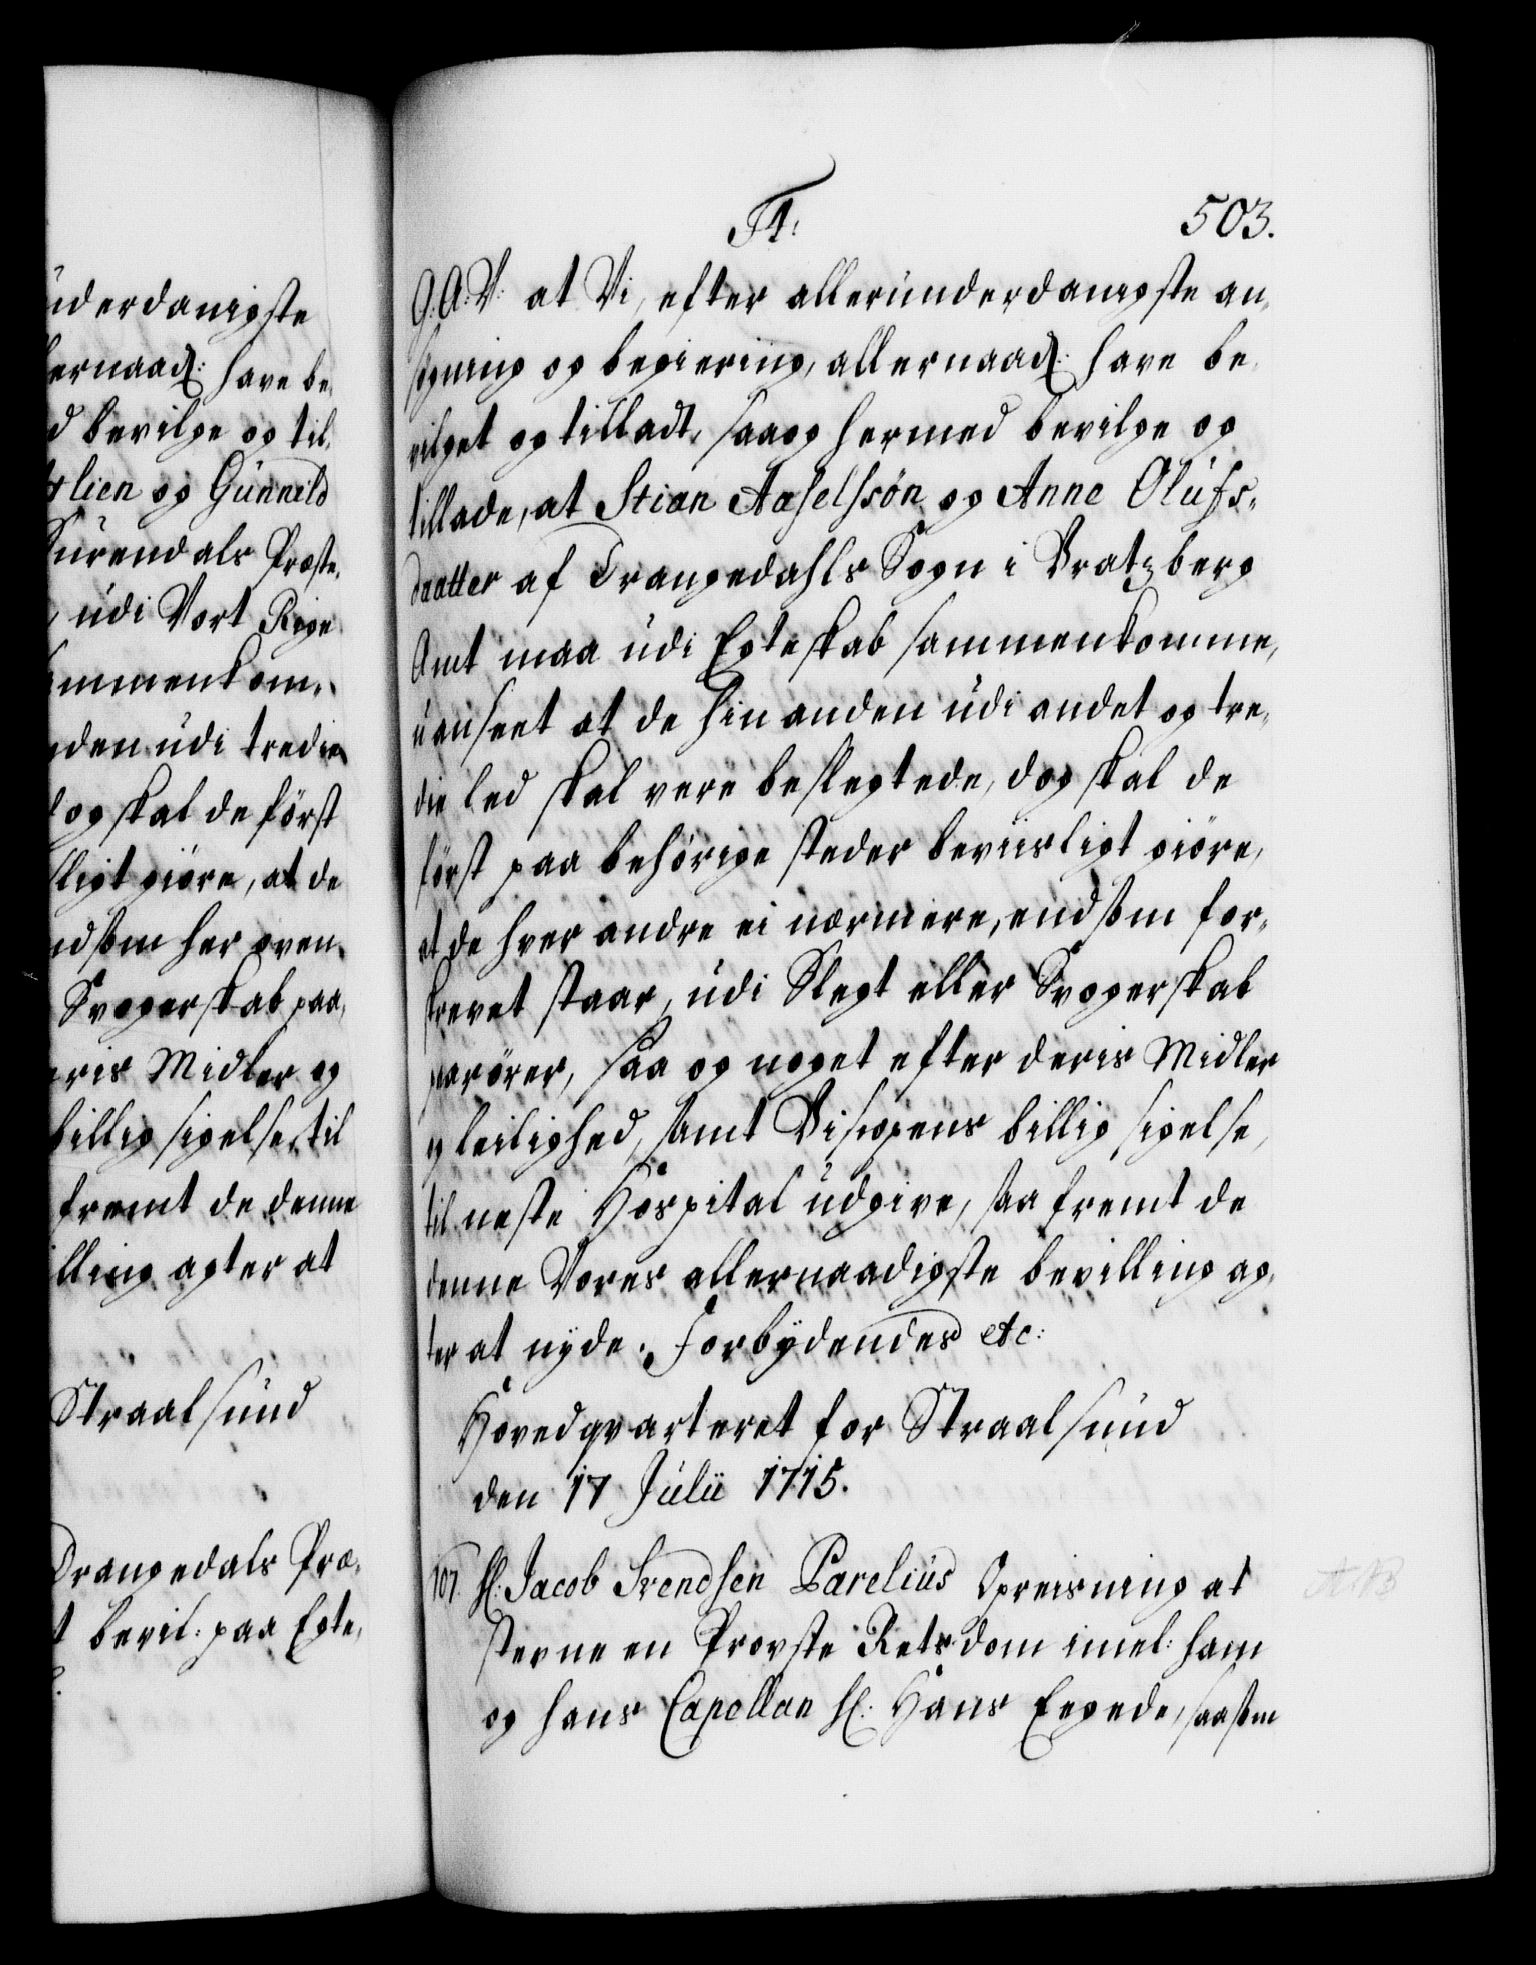 uderdanigste
ernaad: have be-
d bevilge og til-
lien og Gunnild
Surendals Præste-
udi Vort Rige
ammenkom-
nden udi tredie
og skal de først
ligt giøre, at de
ndsom her oven-
Svogerskab paa-
eris Midler og
billig sigelse, til
fremt de denne
illing agter at
Straalsund
Drangedals Præ-
t bevil: paa Egte-
F4:
503.
G: A: V: at Vi, efter allerunderdanigste an-
søgning og begiering, allernaad: have be-
vilget og tilladt, saa og hermed bevilge og
tillade, at Stian Aaselssøn og Anne Olufs-
daatter af Trangedahls Sogn i Bratzberg
Amt maa udi Egteskab sammenkomme,
uanseet at de hinanden udi andet og tre-
die led skal vere beslegtede, dog skal de
først paa behørige steder beviisligt giøre,
at de hver andre ei nærmere, endsom for-
skrevet staar, udi Slegt eller Svogerskab
paarører, saa og noget efter deris Midler
og leilighed, samt Biscopens billig sigelse,
til neste Hospital udgive, saa fremt de
denne Vores allernaadigste bevilling ag-
ter at nyde. Forbydendes etc:
Hovedqvarteret for Straalsund
den 17 Julii 1715.
107. Hl: Jacob Svendsen Parelius Opreisning at
stevne en Provste Rets dom imel: ham
og hans Capellan Hl: Hans Eegede, saasom